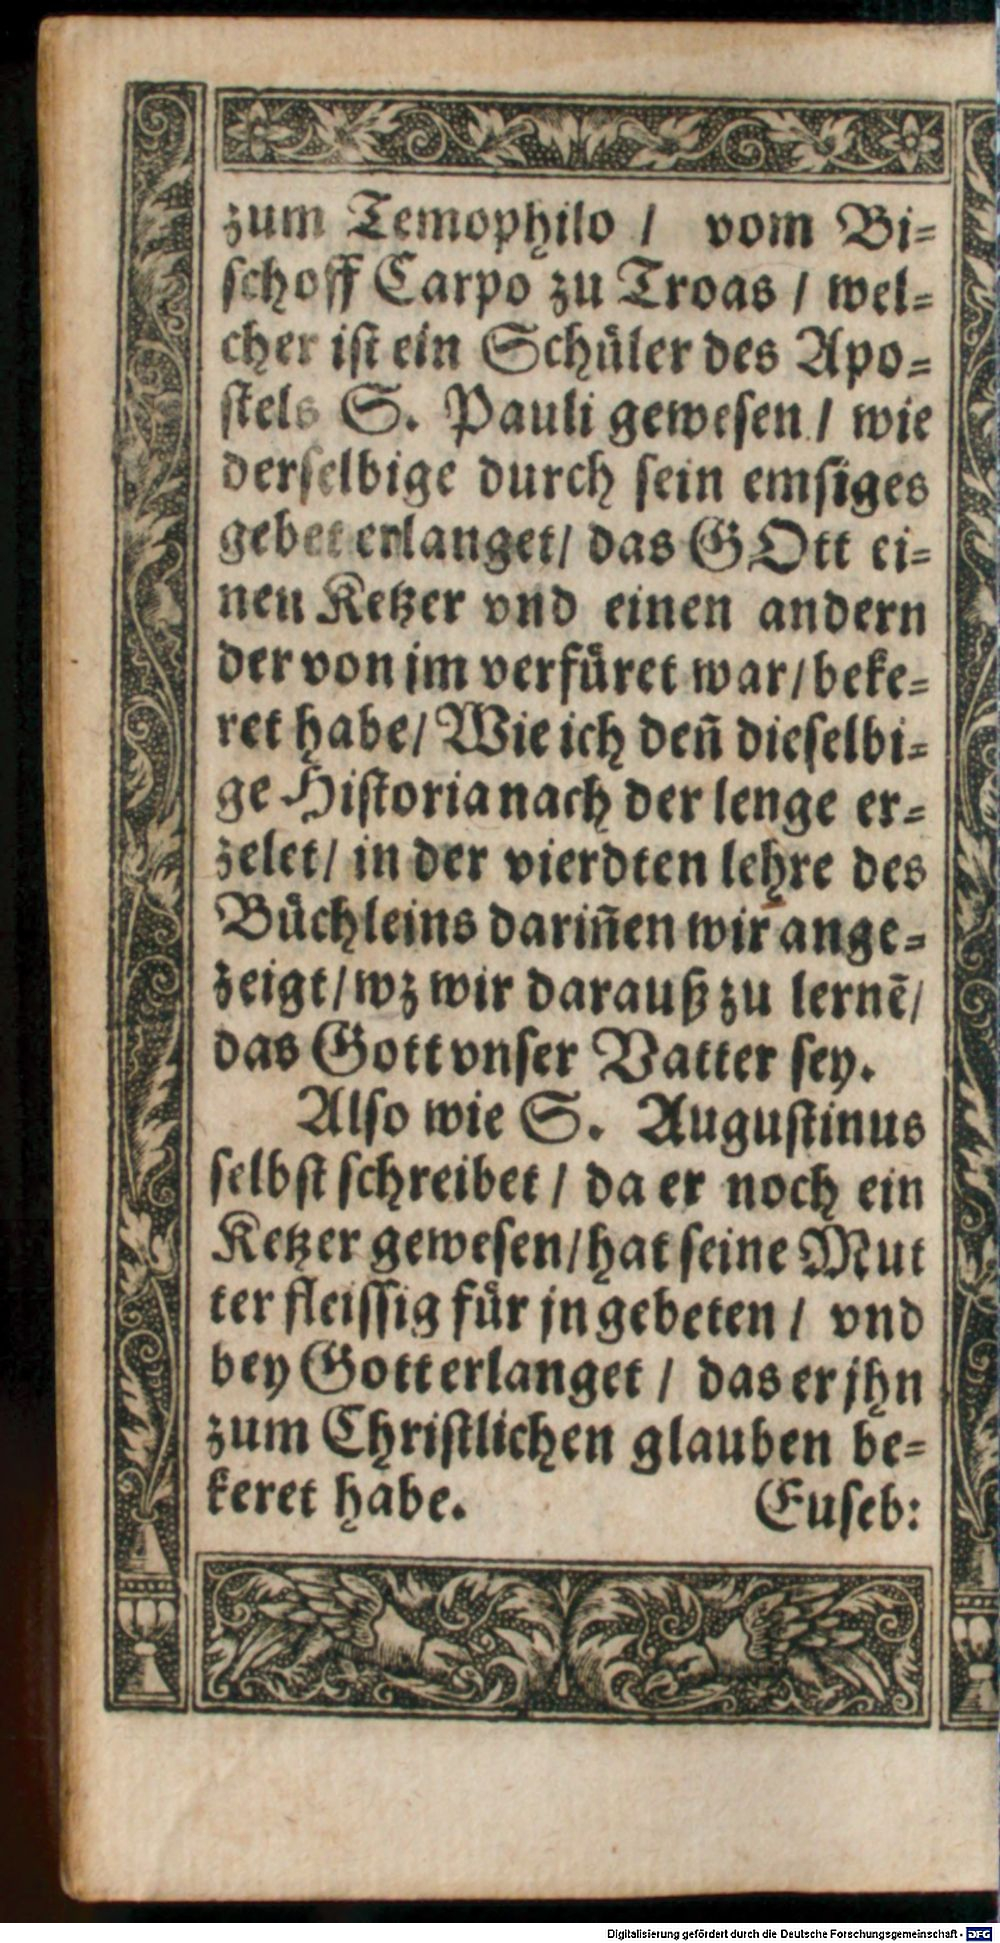 zum Temophilo / vom Bi⸗
schoff Carpo zu Troas / wel⸗
cher ist ein Schüler des Apo⸗
stels S. Pauli gewesen / wie
derselbige durch sein emsiges
gebet erlanget / das GOtt ei⸗
nen Ketzer vnd einen andern
der von jm verfüret war / beke⸗
ret habe / Wie ich deñ dieselbi⸗
ge Historia nach der lenge er⸗
zelet / in der vierdten lehre des
Büchleins dariñen wir ange⸗
zeigt / wz wir darauß zu lernẽ /
das Gott vnser Vatter sey.
Also wie S. Augustinus
selbst schreibet / da er noch ein
Ketzer gewesen / hat seine Mut
ter fleissig für jn gebeten / vnd
bey Gott erlanget / das er jhn
zum Christlichen glauben be⸗
keret habe. Euseb:
Digitalisierung gefördert durch die Deutsche Forschungsgemeinschaft - DFG